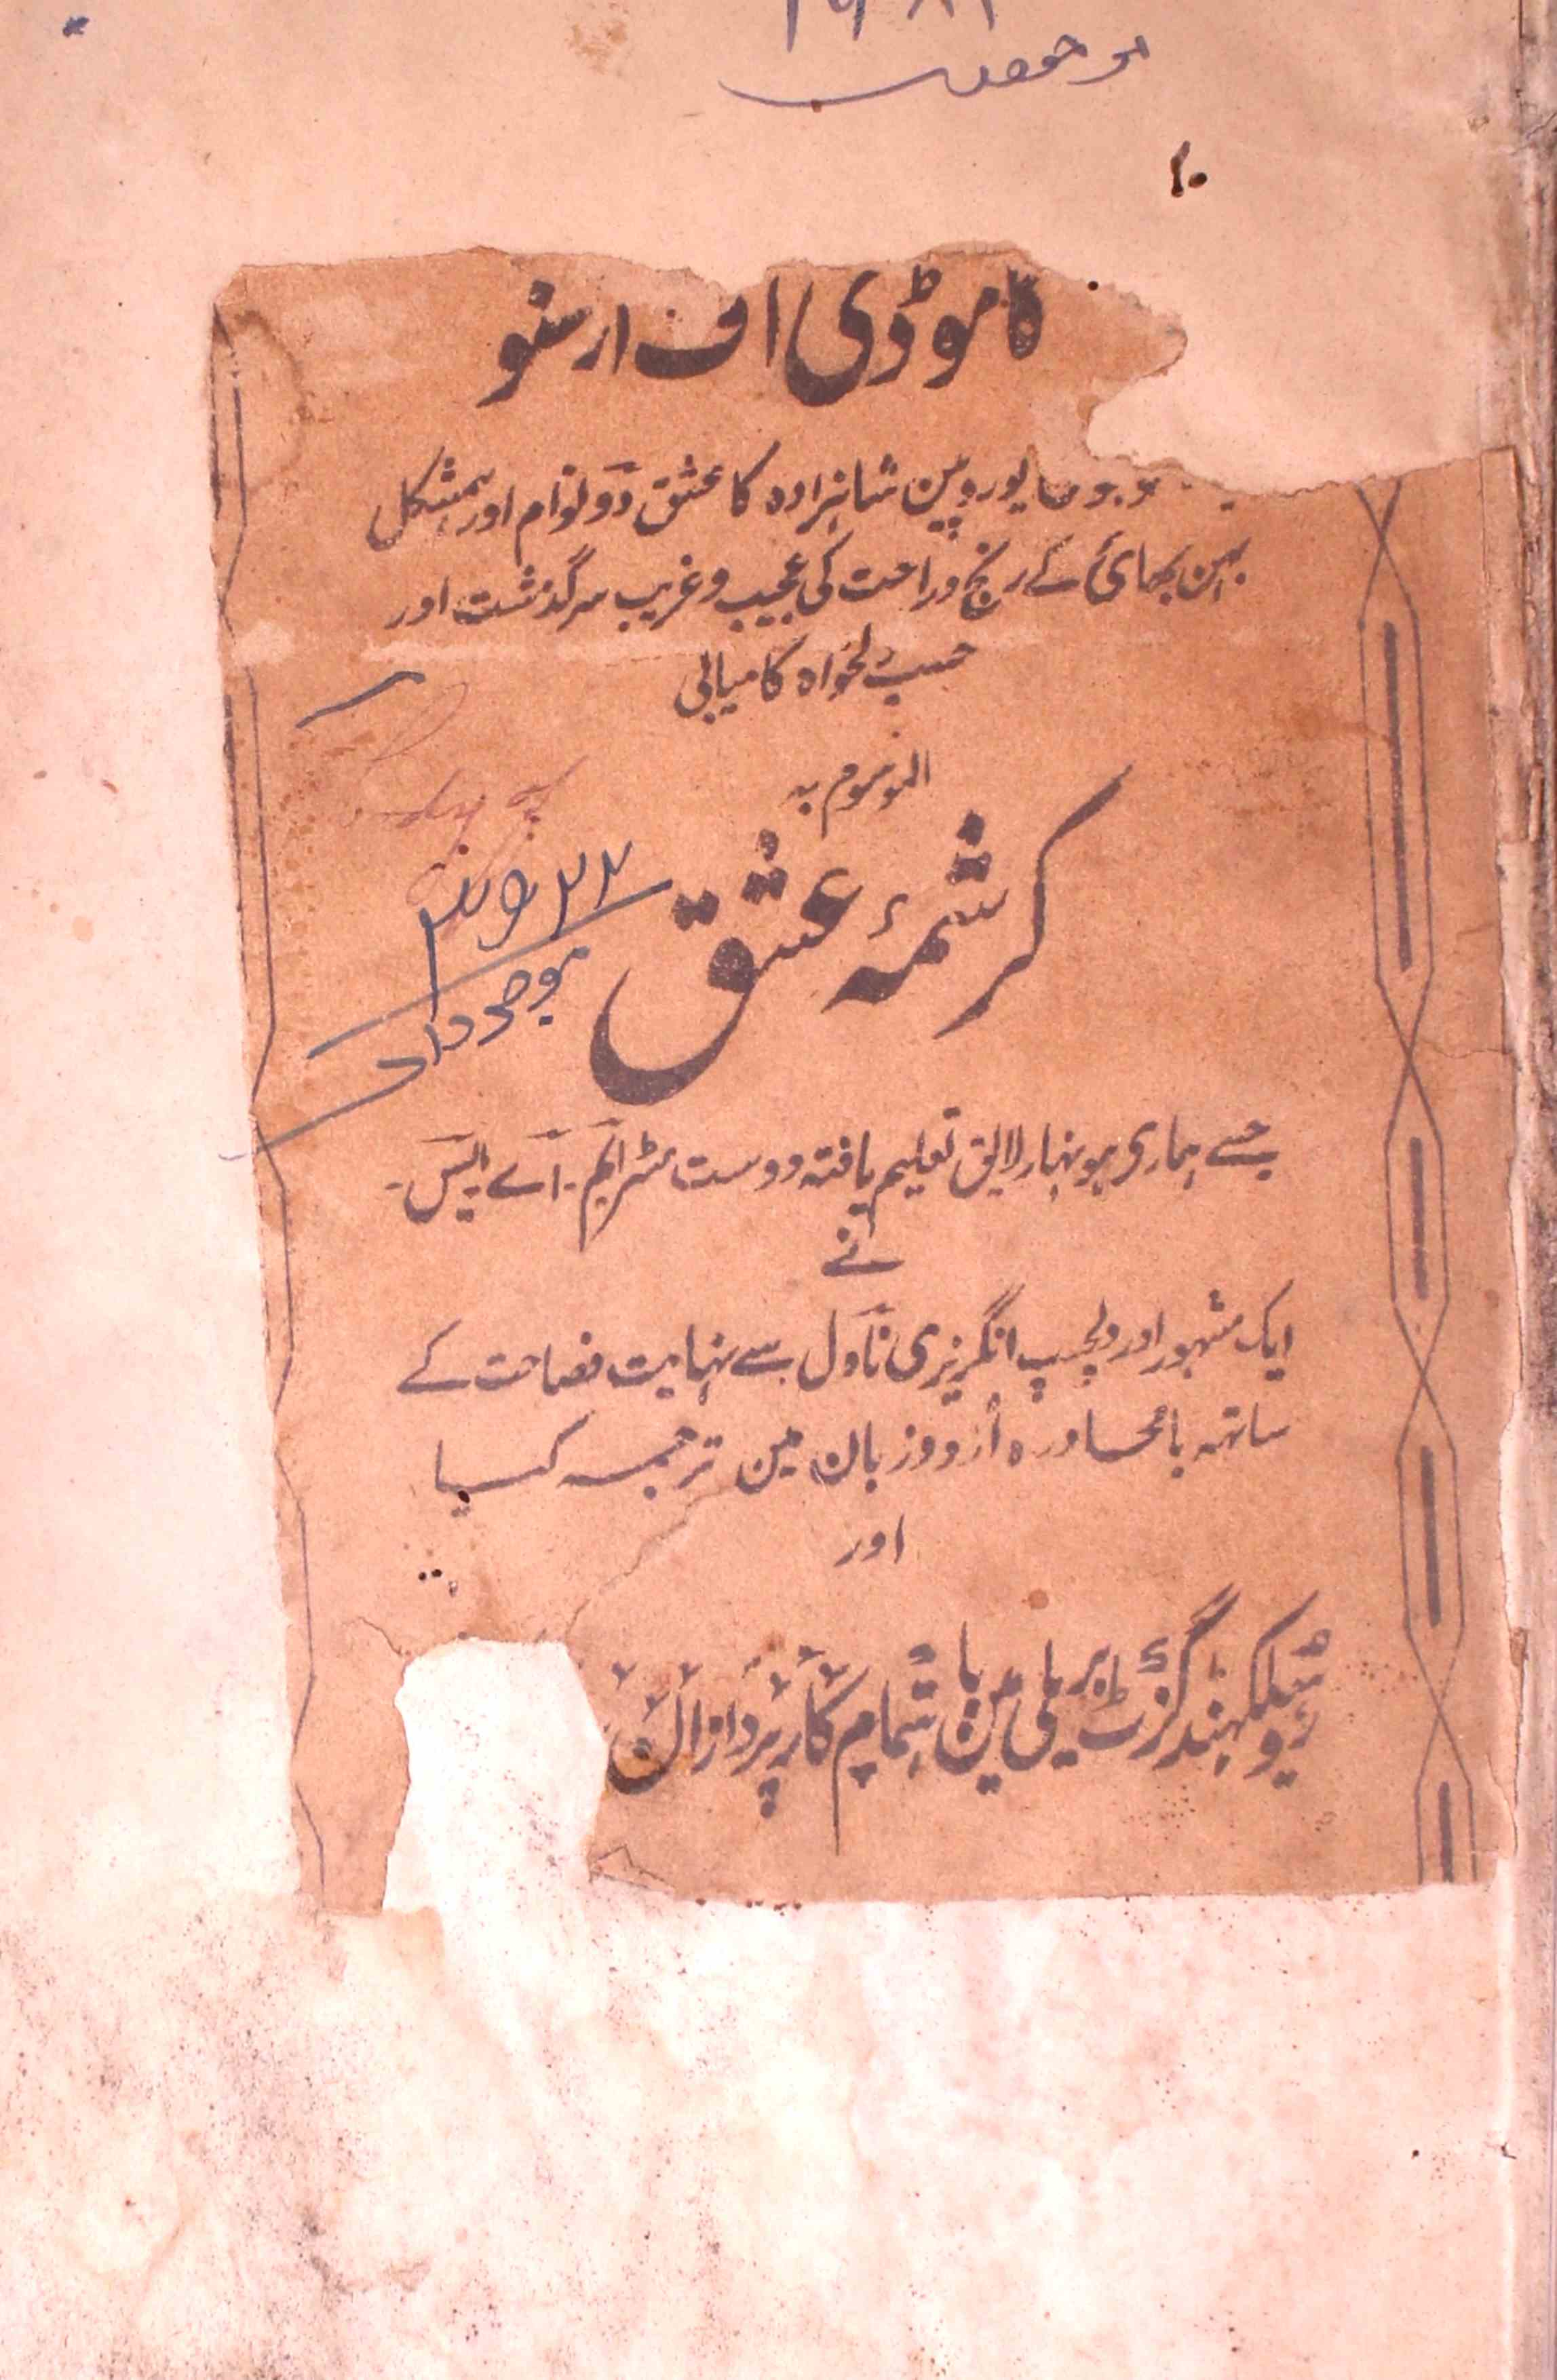 کاموڈی اف ارسنو
یوروپین شاہزادہ کا عشق دو توام اور ہمشکل
بہن بھائی کے رنج و راحت کی عجیب و غریب سرگذشت اور
حسب دلخواہ کامیابی
الموسوم بہ
کرشمۂ عشق
جسے ہماری ہونہار لایق تعلیم یافتہ دوست مسٹر ایم۔ اے۔ ایس۔
نے
ایک مشہور اور دلچسپ انگریزی ناول سے نہایت فصاحت کے
ساتہہ بامحاورہ اُردو زبان مین ترجمہ کیا
اور
روہیلکھنڈ گزٹ بریلی مین باہتمام کارپردازان